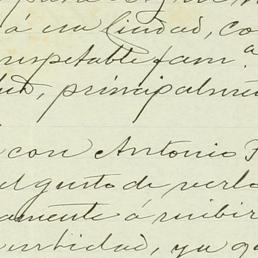 á esa Ciudad, co
respetable fam.a
lud, principalme
con Antonio F
el gusto de verlo
amente á recibir
urbidad, ya q